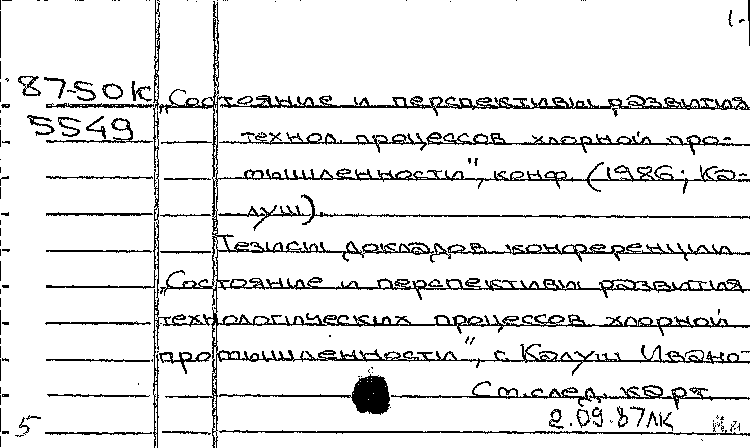 1-
87-50К „Состояние и перспективы развития
5549 технол. процессов хлорной про-
мышленности", конф. (1986; Ка-
луш).
Тезисы докладов конференции
„Состояние и перспективы развития
технологических процессов хлорной
промышленности", г. Калуш Ивано-
См. след. карт.
2.09.87ЛК
5